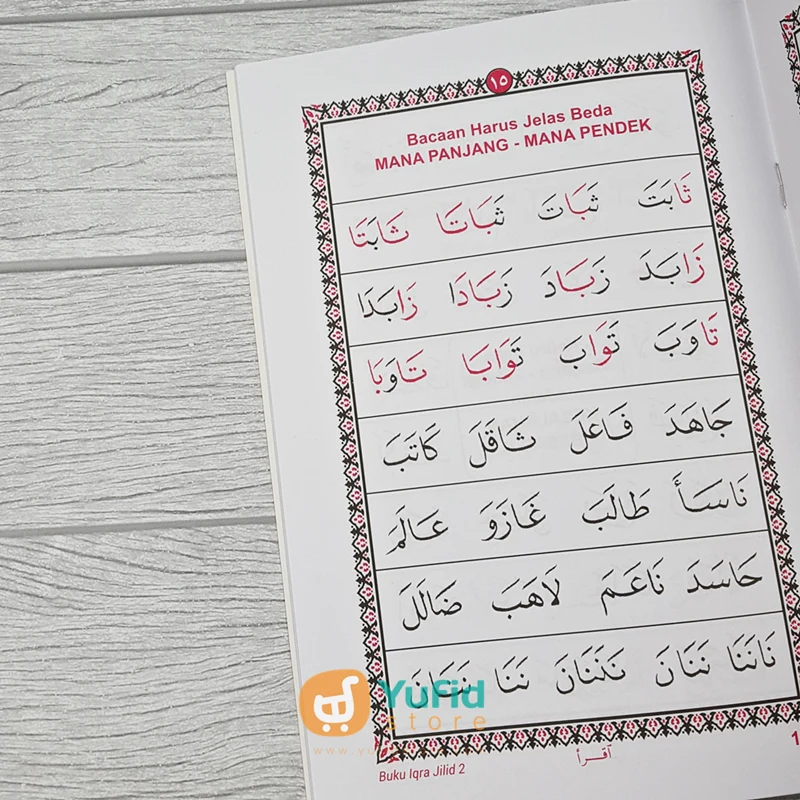 ١٥
Bacaan Harus Jelas Beda
MANA PANJANG - MANA PENDEK
ثَابَتَ ثَبَاتَ ثَبَاتَا ثَابَتَا
زَابَدَ زَبَادَ زَبَادَا زَابَدَا
تَاوَبَ تَوَابَ تَوَابَا تَاوَبَا
جَاهَدَ فَاعَلَ ثَاقَلَ كَاتَبَ
نَاسَأَ طَالَبَ غَازَوَ عَالَمَ
حَاسَدَ نَاعَمَ لَاهَبَ ضَالَلَ
نَانَنَا نَنَانَ نَنَنَانَ نَنَا
Yufid
store
Buku Iqra Jilid 2
اقرأ